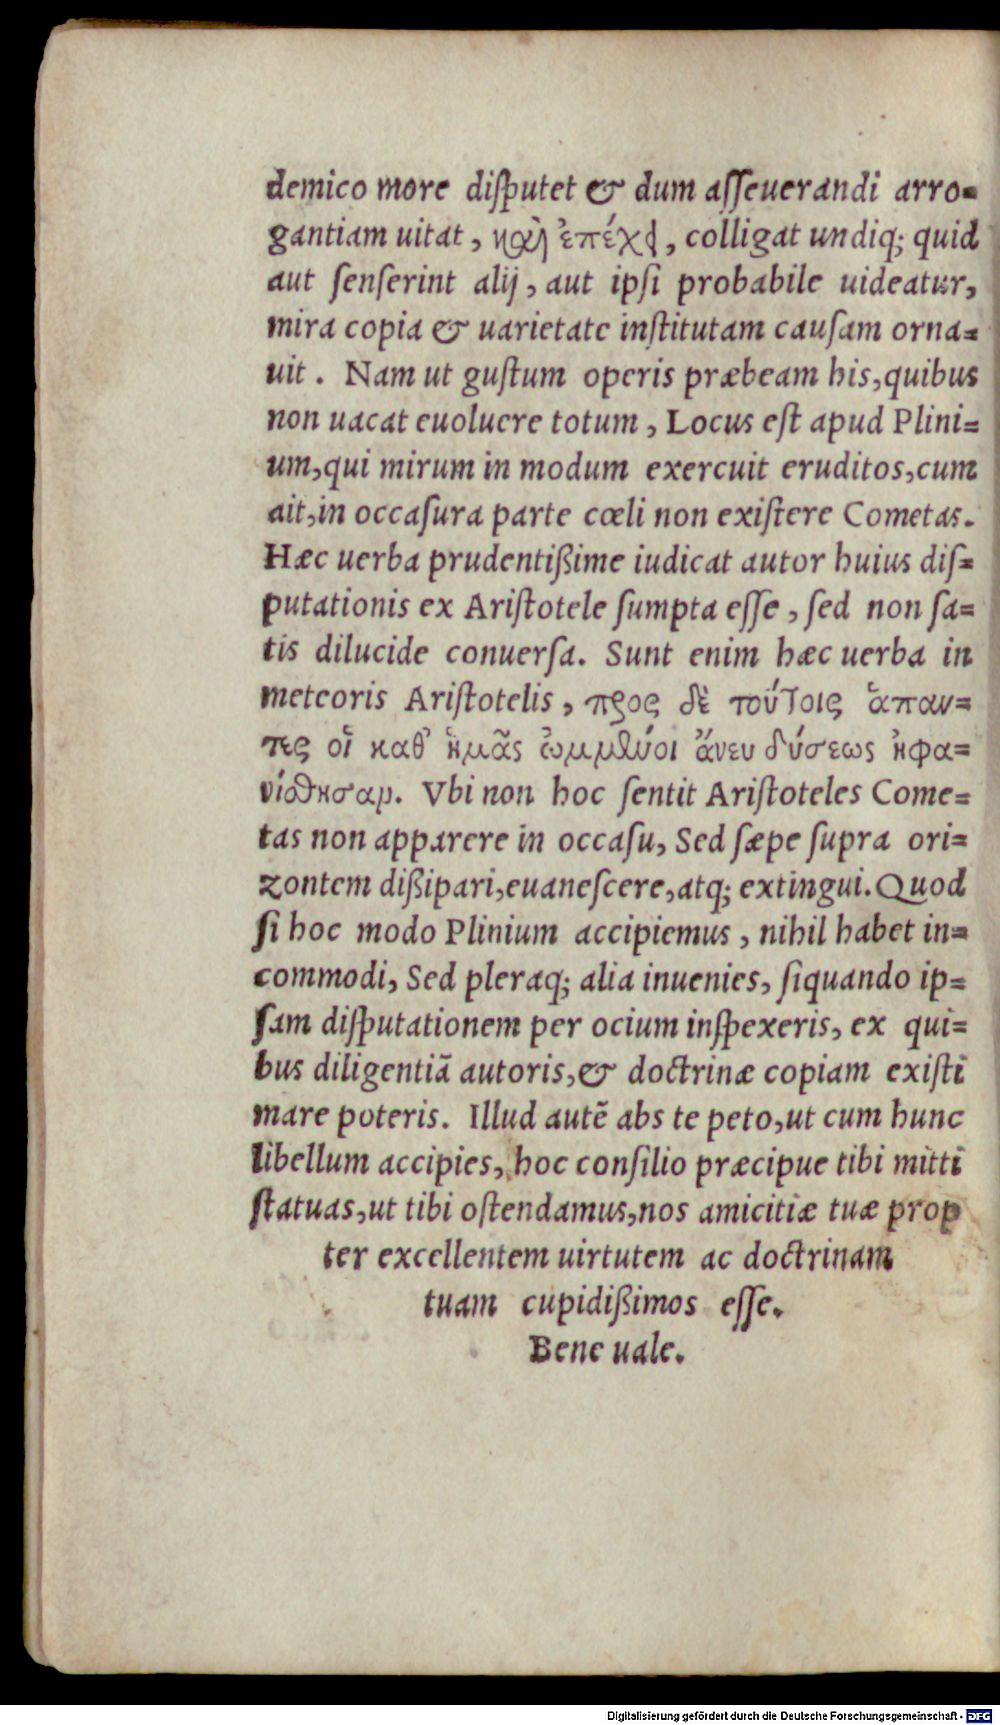 demico more diſputet & dum aſſeuerandi arro-
gantiam uitat, καὶ ἐπέχει, colligat undiq; quid
aut ſenſerint alij, aut ipſi probabile uideatur,
mira copia & uarietate inſtitutam cauſam orna-
uit. Nam ut guſtum operis præbeam his, quibus
non uacat euoluere totum, Locus eſt apud Plini-
um, qui mirum in modum exercuit eruditos, cum
ait, in occaſura parte cœli non exiſtere Cometas.
Hæc uerba prudentißime iudicat autor huius diſ-
putationis ex Ariſtotele ſumpta eſſe, ſed non ſa-
tis dilucide conuerſa. Sunt enim hæc uerba in
meteoris Ariſtotelis, πρὸς δὲ τούτοις ἅπαν-
τες οἱ καθ' ἡμᾶς ὠμμένοι ἄνευ δύσεως ἠφα-
νίσθησαν. Vbi non hoc ſentit Ariſtoteles Come-
tas non apparere in occaſu, Sed ſæpe ſupra ori-
zontem dißipari, euaneſcere, atq; extingui. Quod
ſi hoc modo Plinium accipiemus, nihil habet in-
commodi, Sed pleraq; alia inuenies, ſiquando ip-
ſam diſputationem per ocium inſpexeris, ex qui-
bus diligentiã autoris, & doctrinæ copiam exiſti
mare poteris. Illud autẽ abs te peto, ut cum hunc
libellum accipies, hoc conſilio præcipue tibi mitti
ſtatuas, ut tibi oſtendamus, nos amicitiæ tuæ prop
ter excellentem uirtutem ac doctrinam
tuam cupidißimos eſſe.
Bene uale.
Digitalisierung gefördert durch die Deutsche Forschungsgemeinschaft - DFG